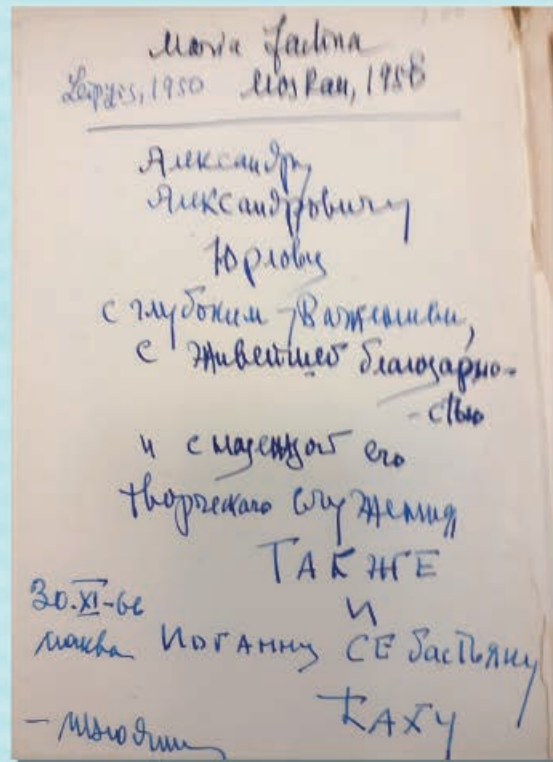 Maria Judina
Leipzig, 1950 Moskau, 1958
Александру
Александровичу
Юрлову
с глубоким уважением,
с живейшей благодарно-
- стью
и с надеждой его
творческого служения
ТАКЖЕ
И
30.XI-
Москва ИОГАННУ СЕбасТЬЯНу
БАХУ